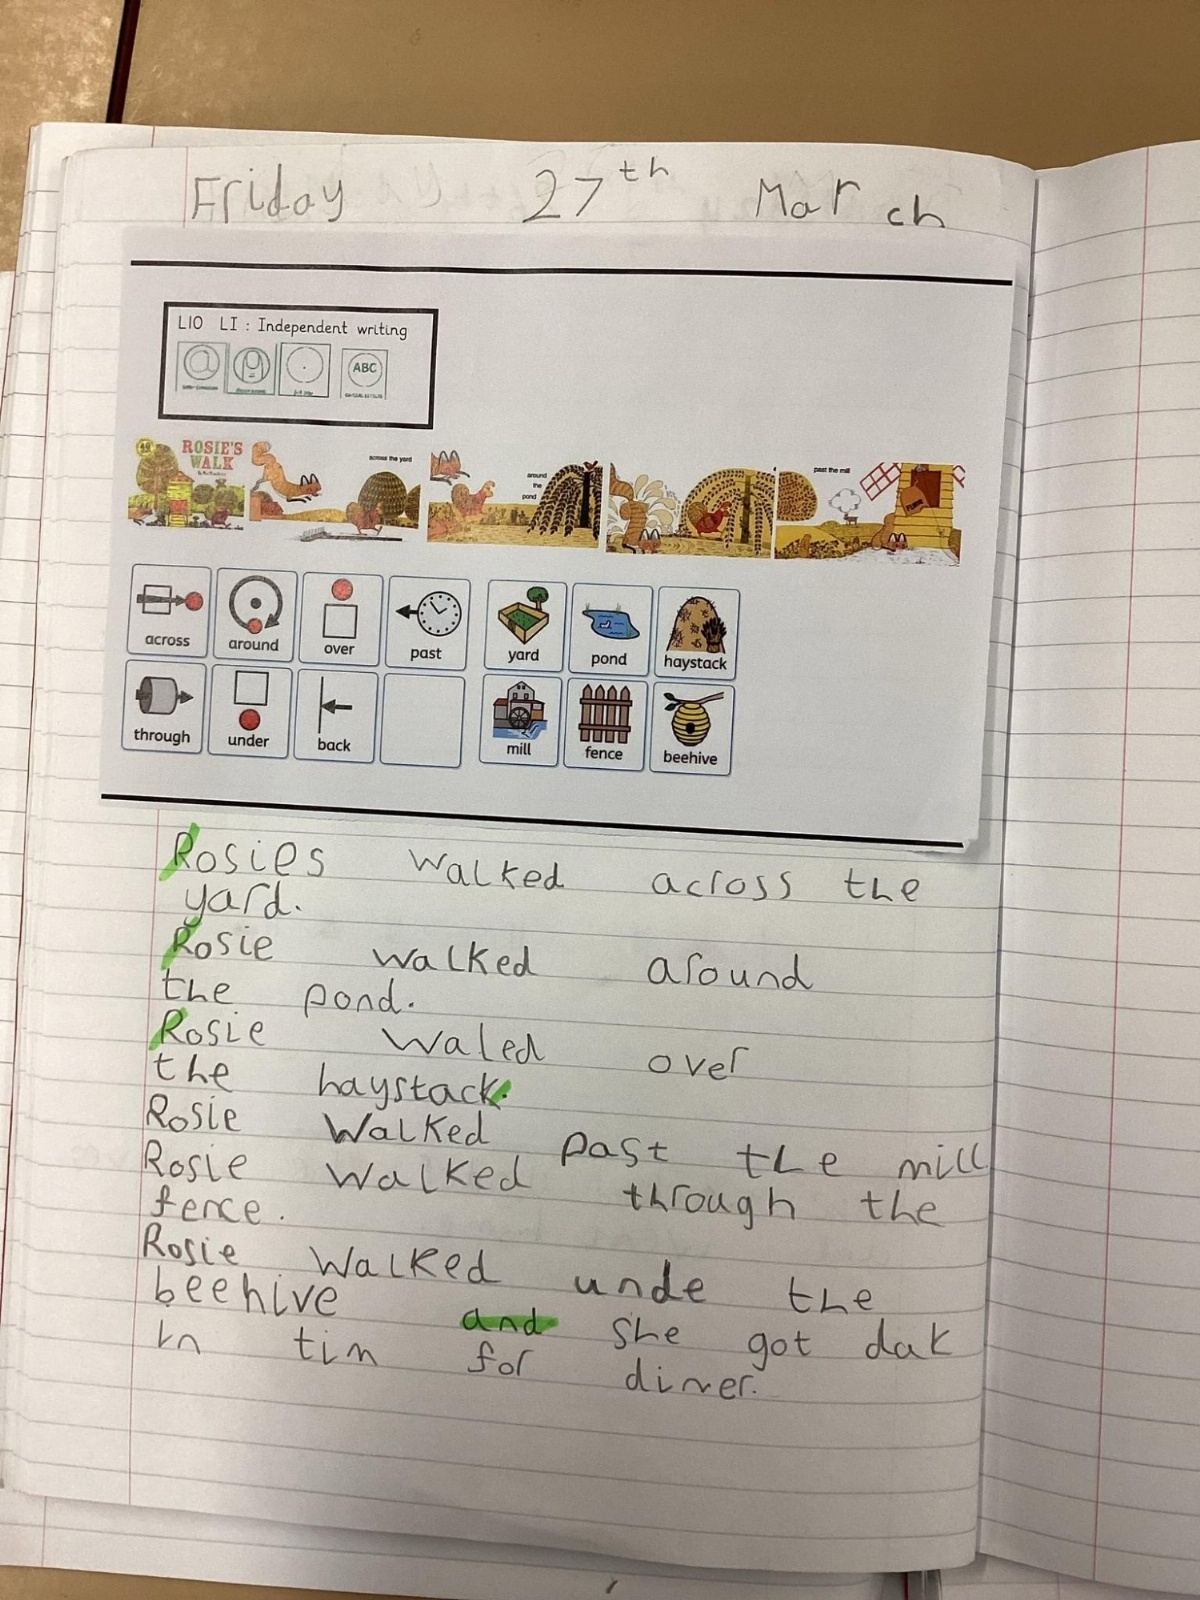 Friday 27th March
L10 LI : Independent writing
ABC
ROSIE'S
WALK
across the yard
around
the
pond
past the mill
across around over past yard pond haystack
through under back mill fence beehive
Rosies walked across the
yard.
Rosie walked around
the pond.
Rosie waled over
the haystack.
Rosie walked past the mill
Rosie walked through the
fence.
Rosie walked unde the
beehive and she got dak
in tim for diner.